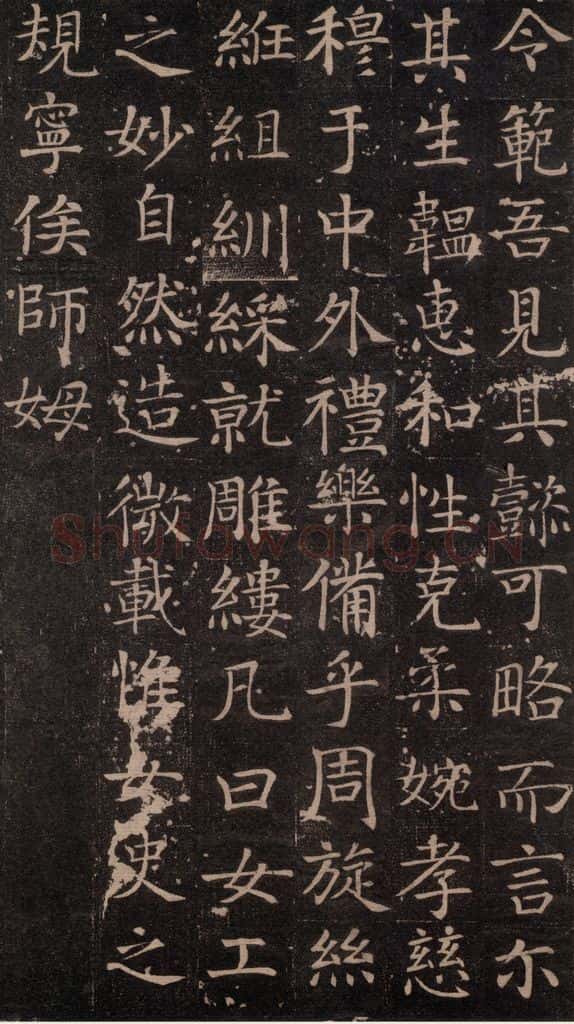 令範吾見其懿可略而言尔
其生韞惠和性克柔婉孝慈
穆于中外禮樂備乎周旋絲
絍組紃綵就雕縷凡曰女工
之妙自然造微載惟女史之
規寧俟師姆
Shufawang.CN